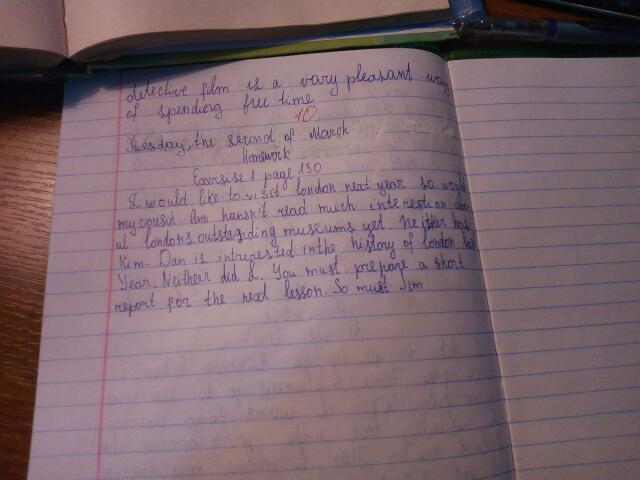 detective film is a vary pleasant way
of spending free time
10
Tuesday, the second of March
Homework
Exercise 1 page 130
I would like to visit london next year so would
my cousin. Ann hansn't read much interestion abo
ut london's outstanding museums yet. Neither has
Kim. Dan is intrerested inthe history of london last
Year. Neither did I. You must prepare a short
report for the next lesson. So must Jim